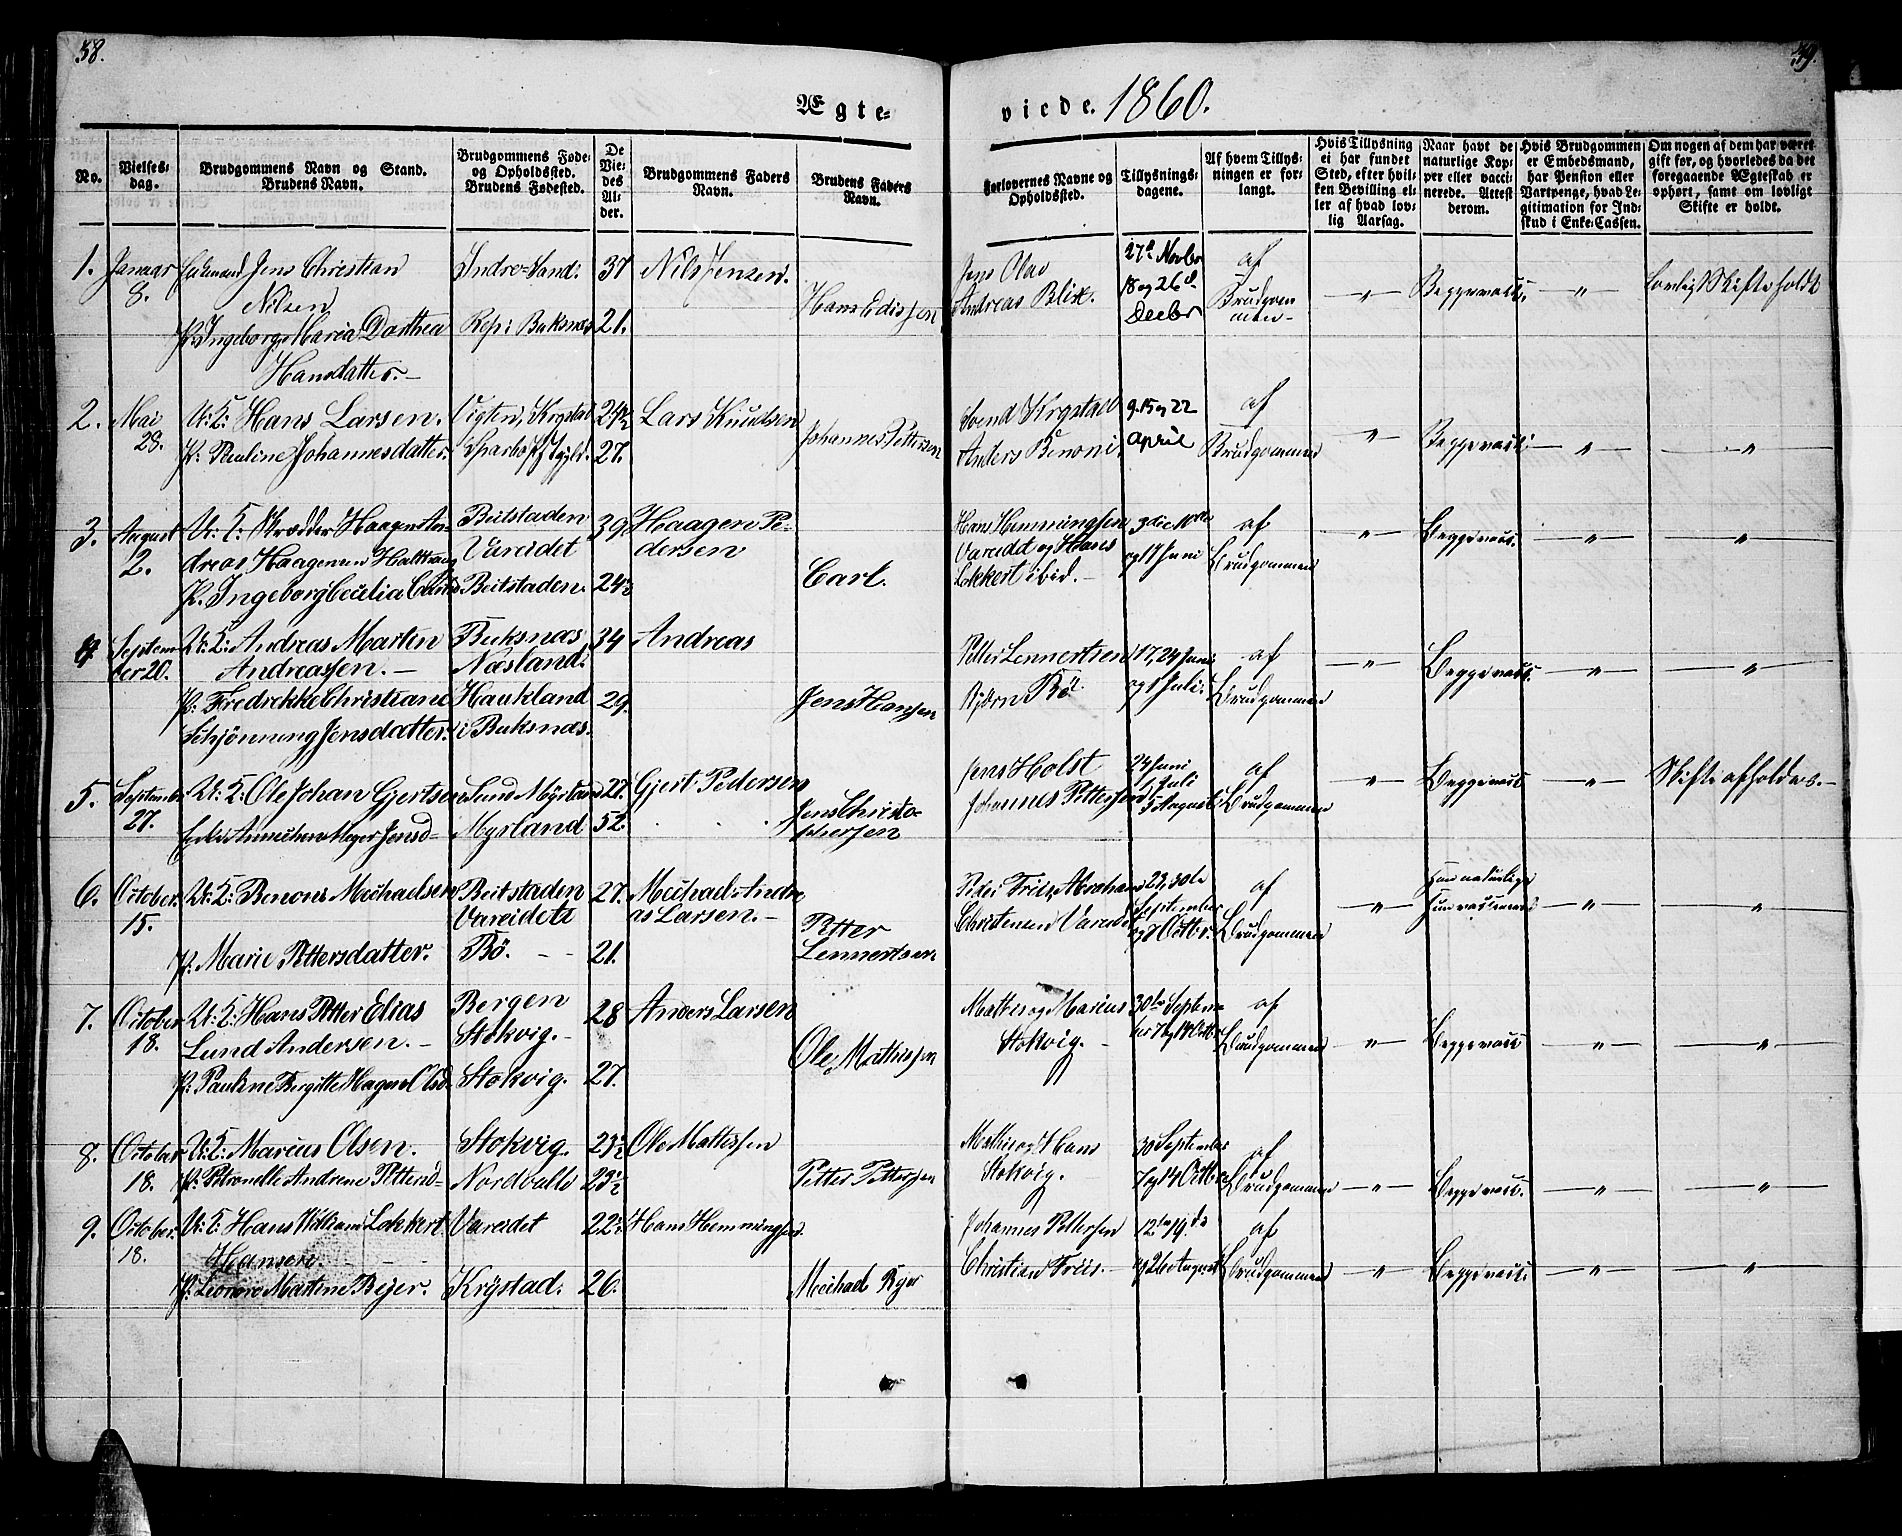 38.
39.
Ægte-
viede. 1860.
No.
Vielses-
dag.
Brudgommens Navn og Stand.
Brudens Navn.
Brudgommens Føde-
og Opholdssted.
Brudens Fødested.
De
Vie-
des
Al-
der.
Brudgommens Faders
Navn.
Brudens Faders
Navn.
Forlovernes Navne og
Opholdssted.
Tillysnings-
dagene.
Af hvem Tillys-
ningen er for-
langt.
Hvis Tillysning
ei har fundet
Sted, efter hvil-
ken Bevilling el-
ler af hvad lov-
lig Aarsag.
Naar havt de
naturlige Kop-
per eller vacci-
nerede. Attest
derom.
Hvis Brudgommen
er Embedsmand,
har Pension eller
Vartpenge, hvad Le-
gitimation for Ind-
skud i Enke-Cassen.
Om nogen af dem har været
gift før, og hvorledes da det
foregaaende Ægteskab er
ophørt, samt om lovligt
Skifte er holdt.
1.
Januar
8.
Jens Christian
Nilsen
P. Ingeborg Maria Dorthea
Hansdatter.
Indre-Sand.
Rep i Buksnæs
37
21.
Nils Jensen.
Hans Edissen
Jens Olai
Andreas Blix.
27d Novbr
18 og 26d
Decbr
af
Brudgom
men
— " —
Begge vacc.
— " —
Lovlig Skifte holdt
2.
Mai
28.
U: K: Hans Larsen.
P: Pauline Johannesdatter.
Vigten, Krystad
27.
Lars Knudsen
Johannes Pettersen
Svend Krystad
Anders Benoni
9. 15 og 22
April
af
Brudgommen
"
Begge vacc.
— " —
— " —
3.
August
2.
U: K: Skrædder Haagen An-
dreas Haagensen
P. Ingeborg Cecilia
Beitstaden
Vareidet
Beitstaden.
39
24½
Haagen Pe-
dersen
Carl.
Hans Hemmingsen
Vareidet og Hans
Lokkert ibid.
3die 10de
og 17 Juni
af
Brudgommen
— " —
Begge vacc.
— " —
"
4
Septem
ber 20.
U: K: Andreas Martin
Andreassen.
P: Fredrekke Christiane
Schjønning Jensdatter.
Buksnæs
Næsland.
Haukland
i Buksnæs.
34
29.
Andreas
Jens Hansen
Petter Lennertsen
Bjørn Bö.
17, 24 Juni
og 1 Juli.
af
Brudgommen
— " —
Begge vacc.
— " —
"
5.
September
27.
U: K: Ole Johan Gjertsen
Enke Jensd
Sund Myrland
Myrland
27.
52.
Gjert Pedersen
Jens Christo-
phersen
Jens Holst
Johannes Pettersen
24 Juni
1 Juli
5 August
af
Brudgommen
"
Begge vacc.
— " —
Skifte afholdes.
6.
October
15.
U: K: Benoni Michaelsen
P. Marie Pettersdatter.
Beitstaden
Vareidet
Bö.
27.
21.
Michael Andre
as Larsen.
Petter
Lennertsen
Peder Friis, Abraham
Christensen Vareidet
23, 30te
September
og 7 Octbr.
af
Brudgommen
— " —
naturlige
— " —
"
7.
October
18.
U: K: Hans Petter Elias
Lund Andersen.
P. Pauline Birgitte Olsd.
Bergen
Stokvig.
Stokvig.
28
27.
Anders Larsen
Ole Mathissen
Mathis og Marius
Stokvig.
30te Septem
ber 7 og 14 Octbr
af
Brudgommen
— " —
Begge vacc
— " —
"
8.
October
18.
U: K: Marius Olsen.
P: Petronelle Andrene Pettersd
Stokvig.
23½
23½
Ole Mathissen
Petter Pettersen
Mathis og Hans
Stokvig.
30 September
7 og 14 Octbr
af
Brudgommen
— " —
Begge vacc.
— " —
— " —
9.
October
18.
U: K: Hans William Lokkert
Hansen.
P. Leonore Martine Bejer.
Vareidet
Krystad.
22½
26.
Hans Hemmingsen
Michael Bejer
Johannes Pettersen
Christian Friis.
12te 19de
og 26 August
af
Brudgommen
— " —
Begge vacc.
— " —
"